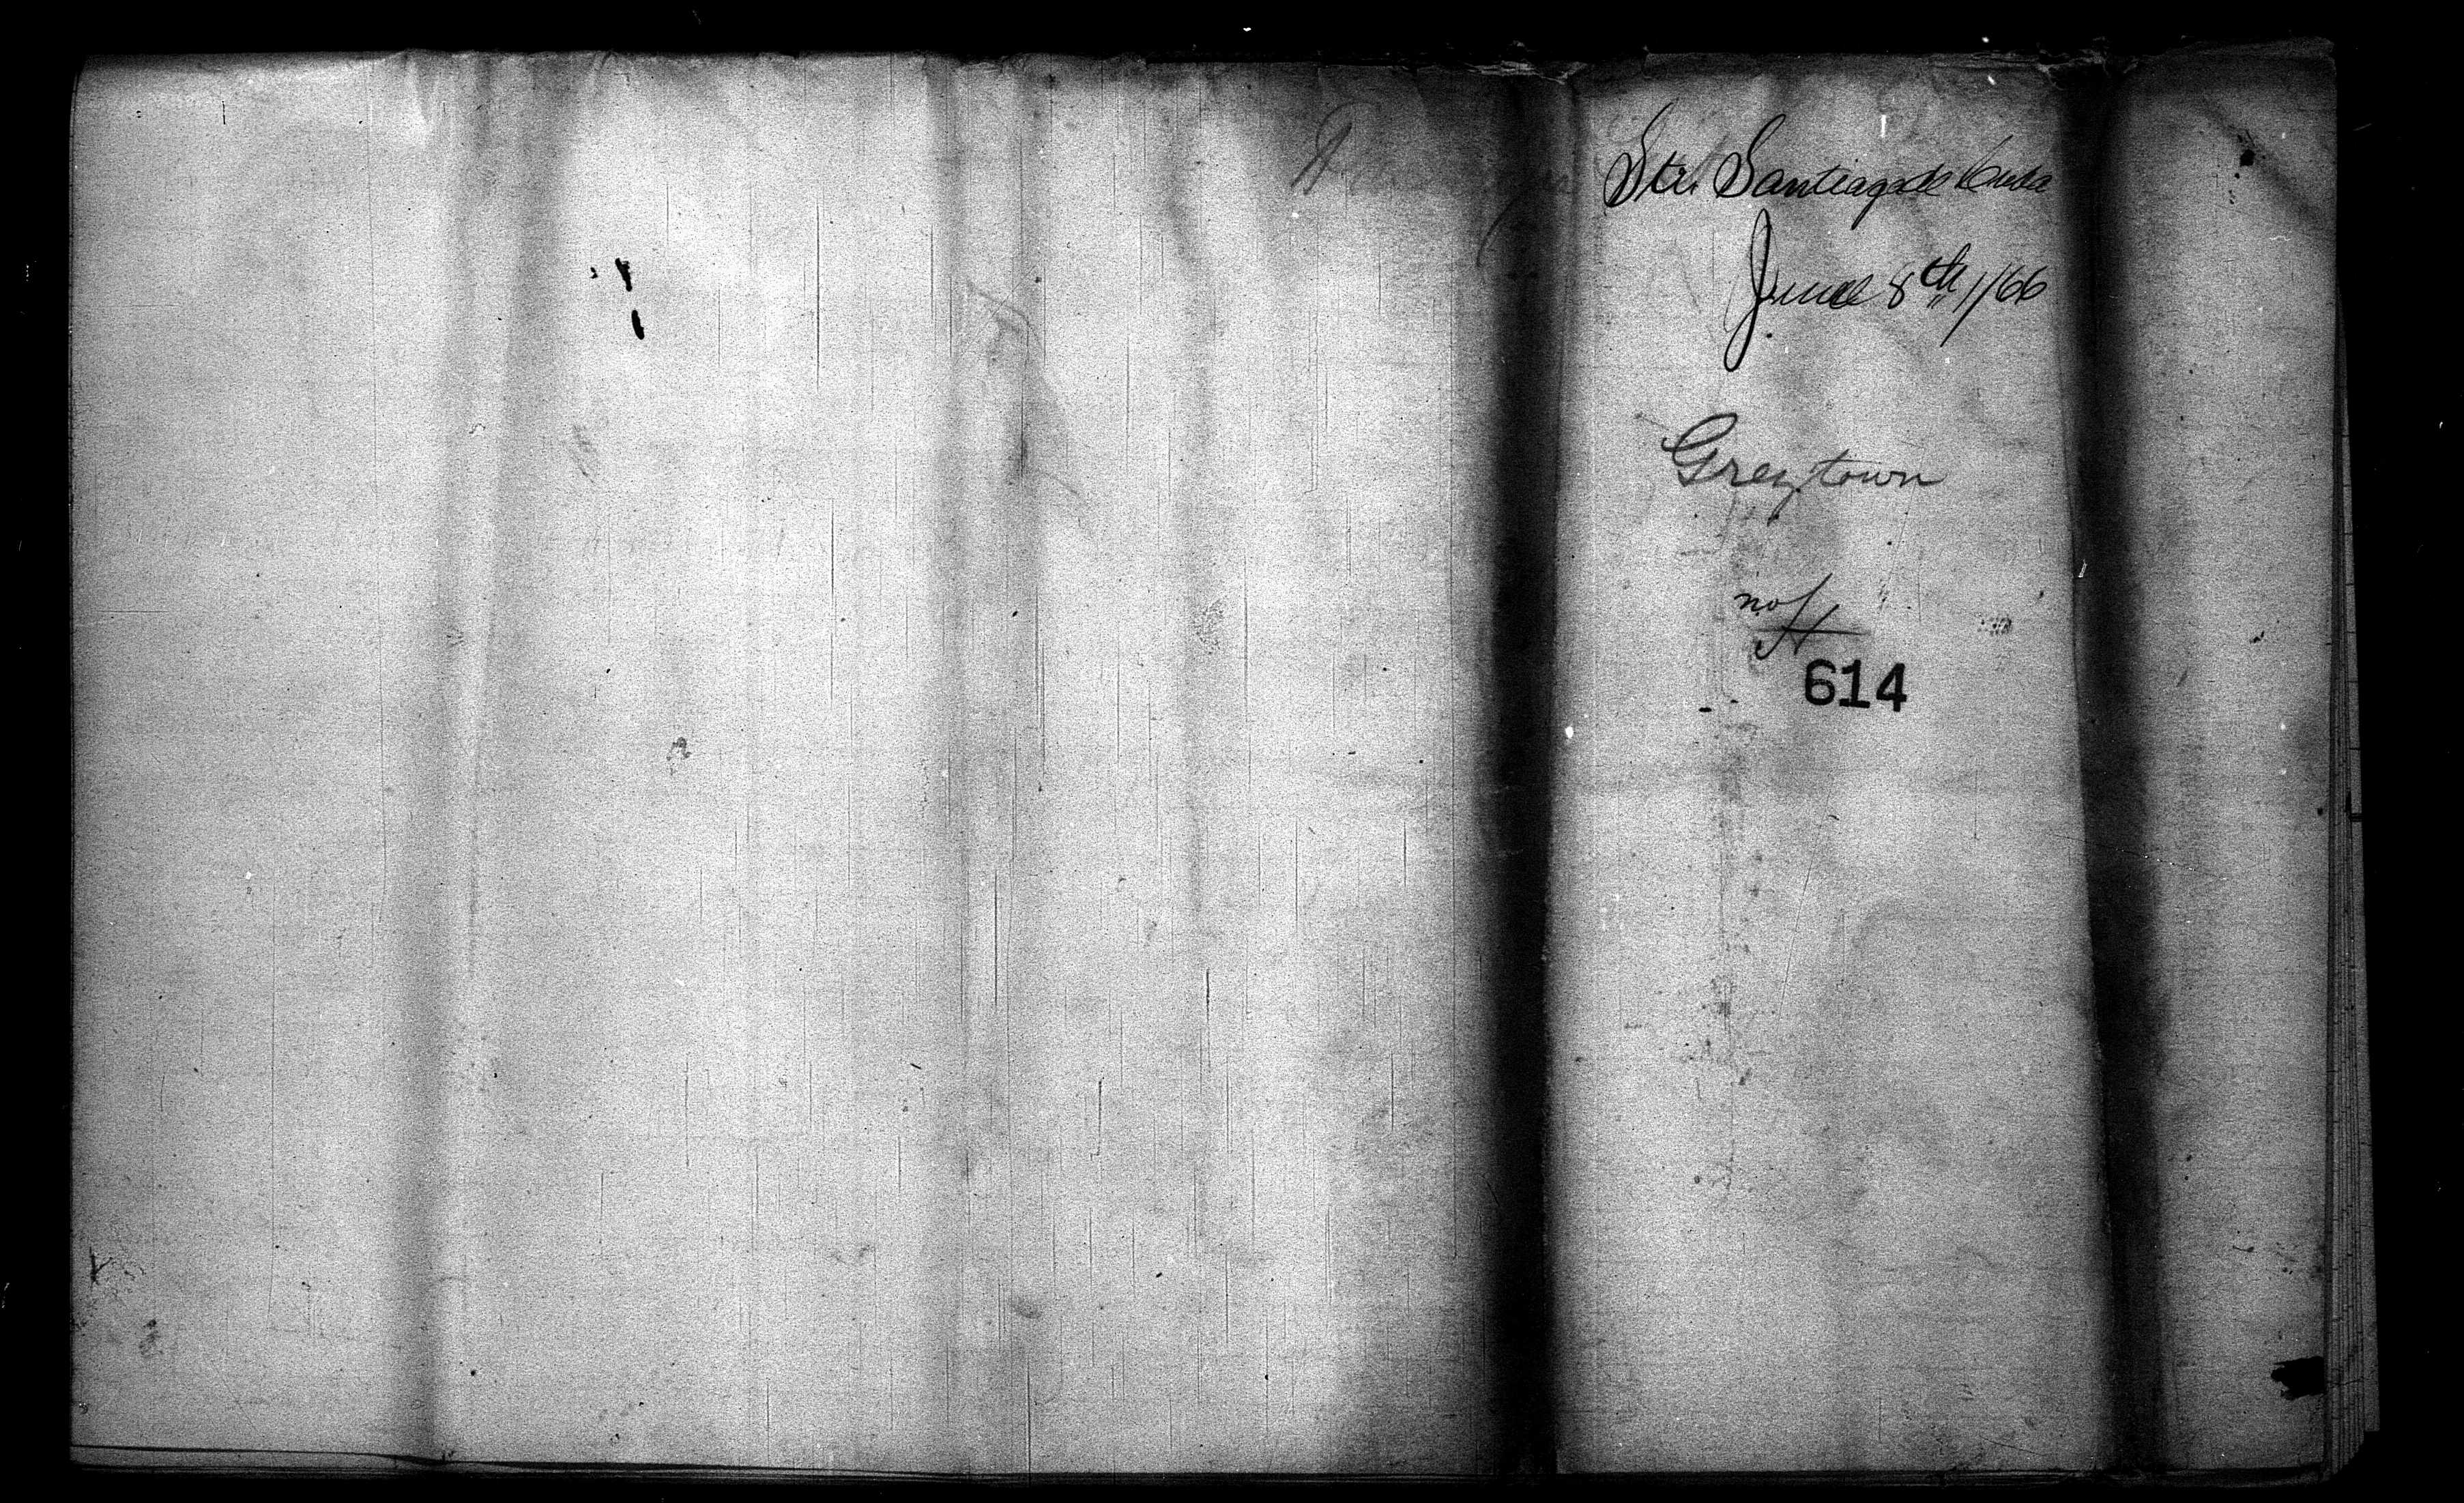 Str. Santiago de Cuba
June 8th /66
Greytown
not
614